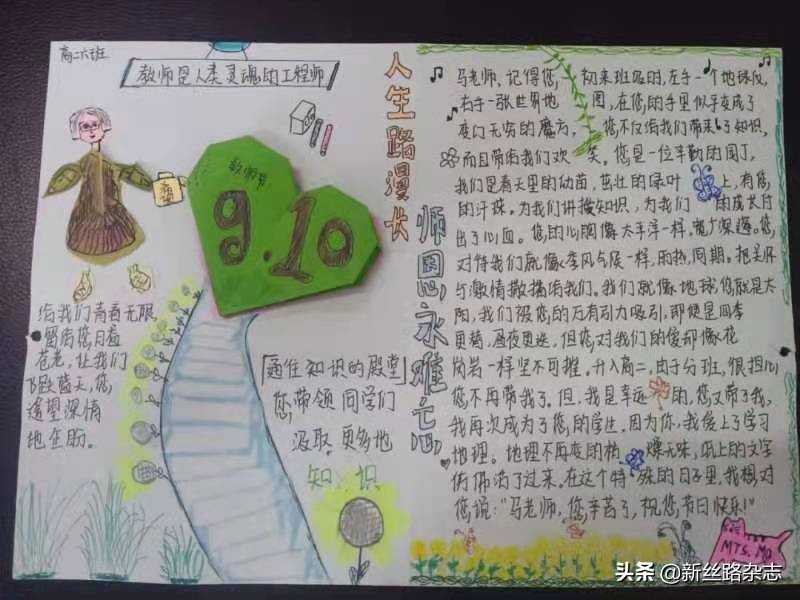 高二六班
教师是人类灵魂的工程师
教师节
9.10
给我们青春无限
留给您日暮
苍老，让我们
飞跃蓝天，您
遥望深情
地在盼。
「通往知识的殿堂」
您带领同学们
汲取更多地
知识
人生路漫长
师恩永难忘
马老师，记得您初来班级时，左手一个地球仪，
右手一张世界地图，在您的手里似乎变成了
变幻无穷的魔方，您不仅给我们带来了知识，
而且带给我们欢笑。您是一位辛勤的园丁，
我们是春天里的幼苗，茁壮的绿叶上，有您
的汗珠。为我们讲授知识，为我们的成长付
出了心血。您的心胸像太平洋一样，宽广深邃。您
对待我们就像季风气候一样，雨热同期。把关怀
与激情散播给我们。我们就像地球，您就是太
阳，我们被您的万有引力吸引，那便是四季
更替，昼夜更迭，但您对我们的爱却像花
岗岩一样坚不可摧，升入高二，由于分班，很担心
您不再带我了。但，我是幸运的，您又带了我，
我再次成为了您的学生。因为你，我爱上了学习
地理。地理不再变的枯燥无味，纸上的文字
仿佛活了过来，在这个特殊的日子里，我想对
您说：“马老师，您辛苦了，祝您节日快乐！”
MTS. MQ
头条 @新丝路杂志